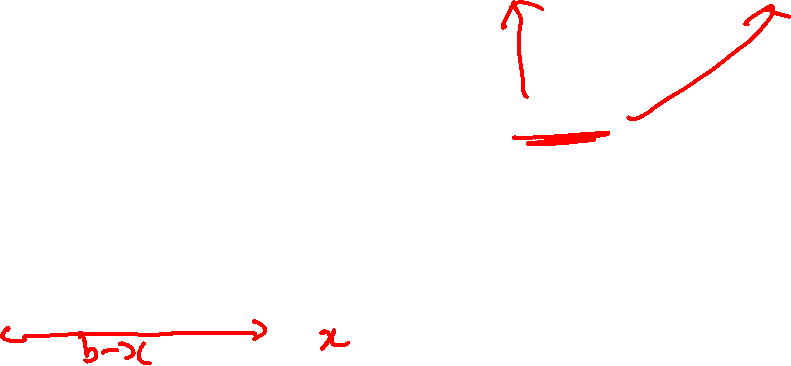 b-x x